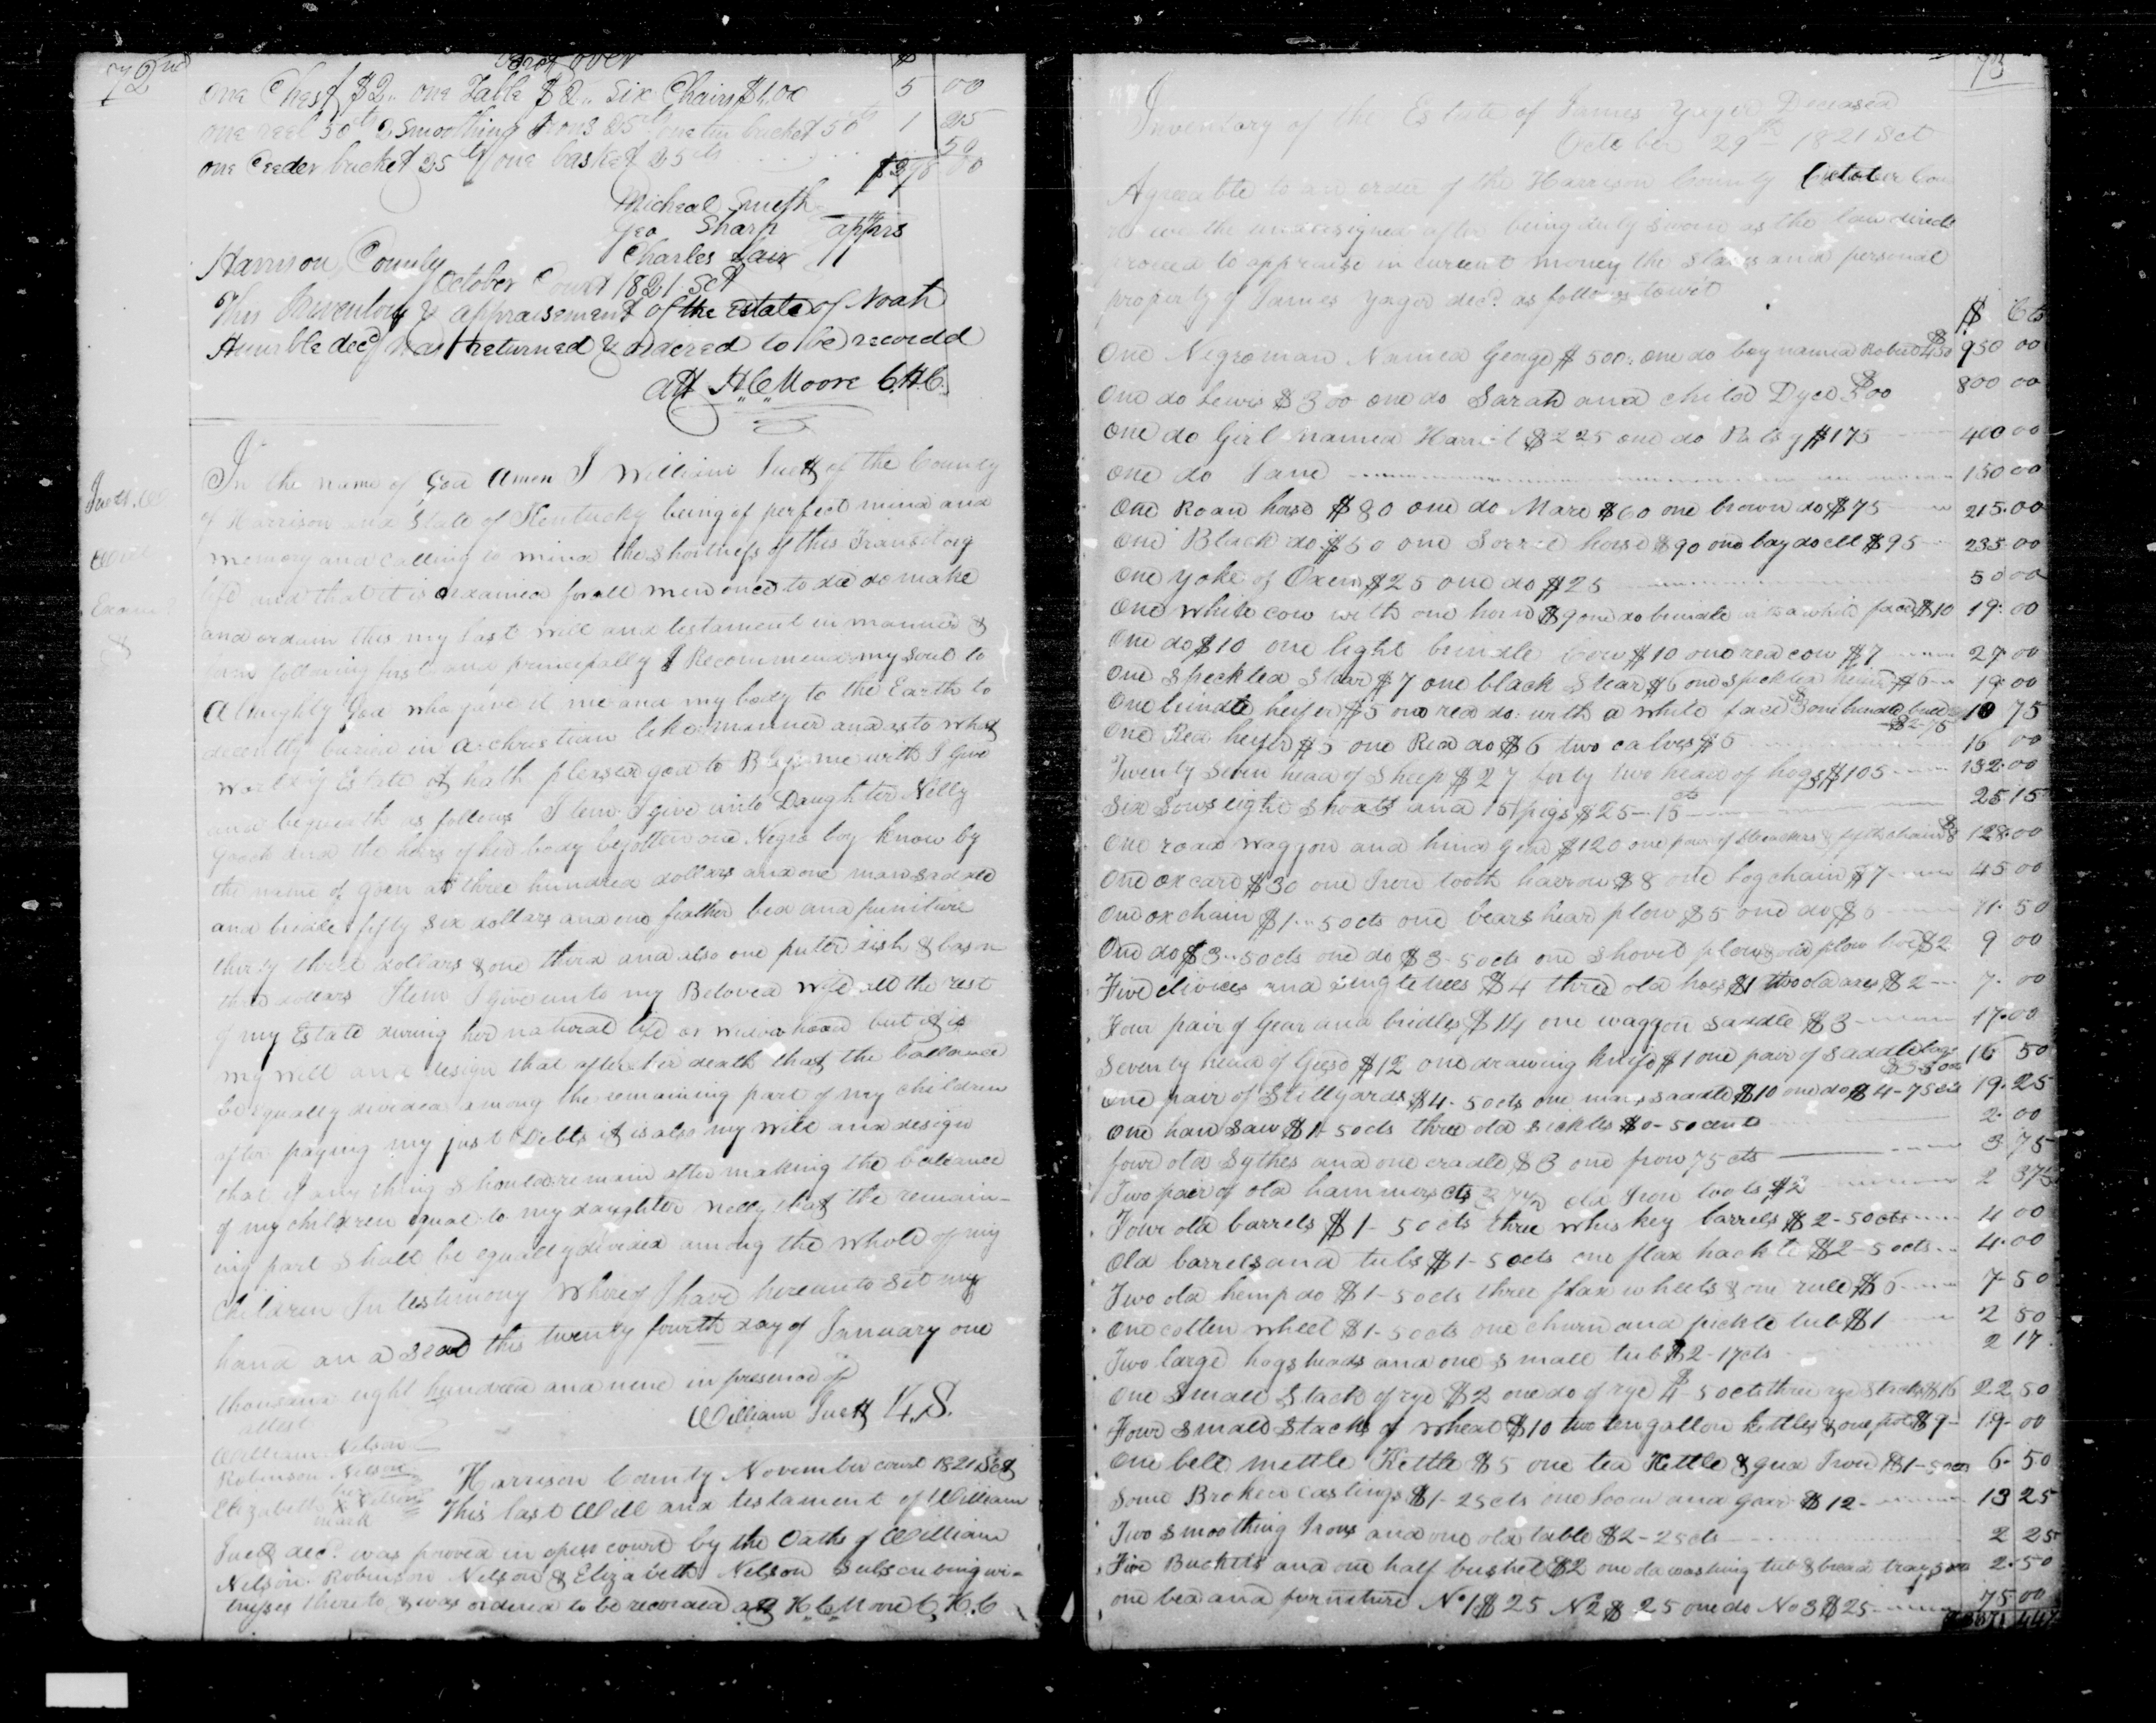 72nd
Brot over $
One Chest $2,, one Table $2,, Six Chairs $1,00 5 00
one reel 50cts 2 Smoothing Irons 25cts one tin bucket 50cts 1 25
one Ceeder bucket 25cts one basket 25cts 50
$378 00
Micheal Smith
Geo Sharp apprs
Charles Lair
Harrison County
October Court 1821 Sct
This Inventory & appraisement of the Estate of Noah
Humble decd was returned & ordered to be recordd
Att H,,C,,Moore C.H.C.
In the name of God Amen I William Juett of the County
of Harrison and State of Kentucky being of perfect mind and
memory and calling to mind the Shortness of this Transitory
life and that it is ordained for all men once to die do make
and ordain this my last will and testament in manner &
form following first and principally I Recommend my soul to
Almighty God who gave it me and my body to the Earth to
decently buried in a christian like manner and as to what
worldly Estate it hath pleased god to Bless me with I give
and bequeath as follows Item I give unto Daughter Nelly
and the heirs of her body begotten one Negro boy know by
the name of at three hundred dollars and one man saddle
and bridle fifty six dollars and one feather bed and furniture
thirty three dollars & one third and also one puter dish & bason
three dollars Item I give unto my Beloved wife all the rest
of my Estate during her natural life or widowhood but it is
my will and design that after her death that the ballance
be equally divided among the remaining part of my children
after paying my just Debts it is also my will and design
that if any thing should remain after making the ballance
of my children equal to my daughter Nelly that the remain-
ing part shall be equally divided among the whole of my
children In testimony whereof I have hereunto set my
hand and seal this twenty fourth day of January one
thousand eight hundred and nine in presence of
attest
William Juett L.S.
William Nelson
Robinson Nelson
Elizabeth X Nelson
her
mark
Harrison County November court 1821 Sct
This last Will and testament of William
Juett decd. was proved in open court by the Oaths of William
Nelson Robinson Nelson & Elizabeth Nelson Subscribing wi-
tnesses thereto & was ordered to be recorded att H,,C,,Moore C,H,C
Will
73
Inventory of the Estate of James Yager Deceased
October 29th 1821 Sct
Agreeable to an order of the Harrison County October Cou
rt we the undersigned after being duly sworn as the law directs
proceed to appraise in current money the slaves and personal
property of James Yager decd. as follows towit
$ Cts
One Negro man Named George $500. one do boy named Robert $450 950 00
One do Lewis $300 one do Sarah and child Dyce $500 800 00
One do Girl named Harriet $225 one do Patsy $175 400 00
One do Jane 150 00
One Roan horse $80 one do Mare $60 one brown do $75 215.00
One Black do $50 one Sorrel horse $90 one bay do $95 235 00
One yoke of Oxen $25 one do $25 50 00
One white cow with one horn $9 one do brindle with a white face $10 19.00
One do $10 one light brindle cow $10 one red cow $7 27.00
One speckled Stear $7 one black Stear $6 one speckled heifer $6 19.00
One brindle heifer $5 one red do: with a white face $3 one brindle bull $2-75 10 75
One Red heifer $5 one Red do $6 two calves $5 16 00
Twenty seven head of Sheep $27 forty two head of hogs $105 132.00
Six Sows eight shoats and 15 pigs $25-15cts 25 15
One road waggon and hind gear $120 one pair of Streachers & fifth chain $8 128.00
One ox cart $30 one Iron tooth harrow $8 one log chain $7 45 00
One ox chain $1..50cts one bears hear plow $5 one do $5 11.50
One do $3..50cts one do $3-50cts one shovel plow & old plow $2 9 00
Five clivices and singletrees $4 three old hoes $1 two old axes $2 7.00
Four pair of Gear and bridles $14 one waggon saddle $3 17.00
Seventy head of Geese $12 one drawing knife $1 one pair of Saddle bags $3-50cts 16 50
One pair of Stillyards $4-50cts one mans saddle $10 one do $4-75cts 19.25
One han saw $1-50cts three old sickles $0-50cents 2.00
four old Sythes and one cradle $3 one frow 75cts 3 75
Two pair of old hammers cts 37½ old Iron tools $2 2 37½
Four old barrels $1-50cts three whiskey barrels $2-50cts 4 00
Old barrels and tubs $1-50cts one flax hackle $2-50cts 4.00
Two old hemp do $1-50cts three flax wheels & one reele $6 7-50
One cotten wheel $1-50cts one churn and pickle tub $1 2 50
Two large hogsheads and one small tub $2-17cts 2 17
One small Stack of rye $2 one do of rye $4-50cts three rye Stacks $16 22 50
Four small Stacks of wheat $10 two ten gallon kettles & one pot $9 19.00
One bell mettle Kettle $5 one tea Kettle & gred Iron $1-50cts 6.50
Some Broken castings $1-25cts one Loom and gear $12 13 25
Two smoothing Irons and one old table $2-25cts 2 25
Five Buckets and one half bushel $2 one old washing tub & bread tray 50cts 2.50
one bed and furniture No 1 $25 No 2 $25 one do No 3 $25 75 00